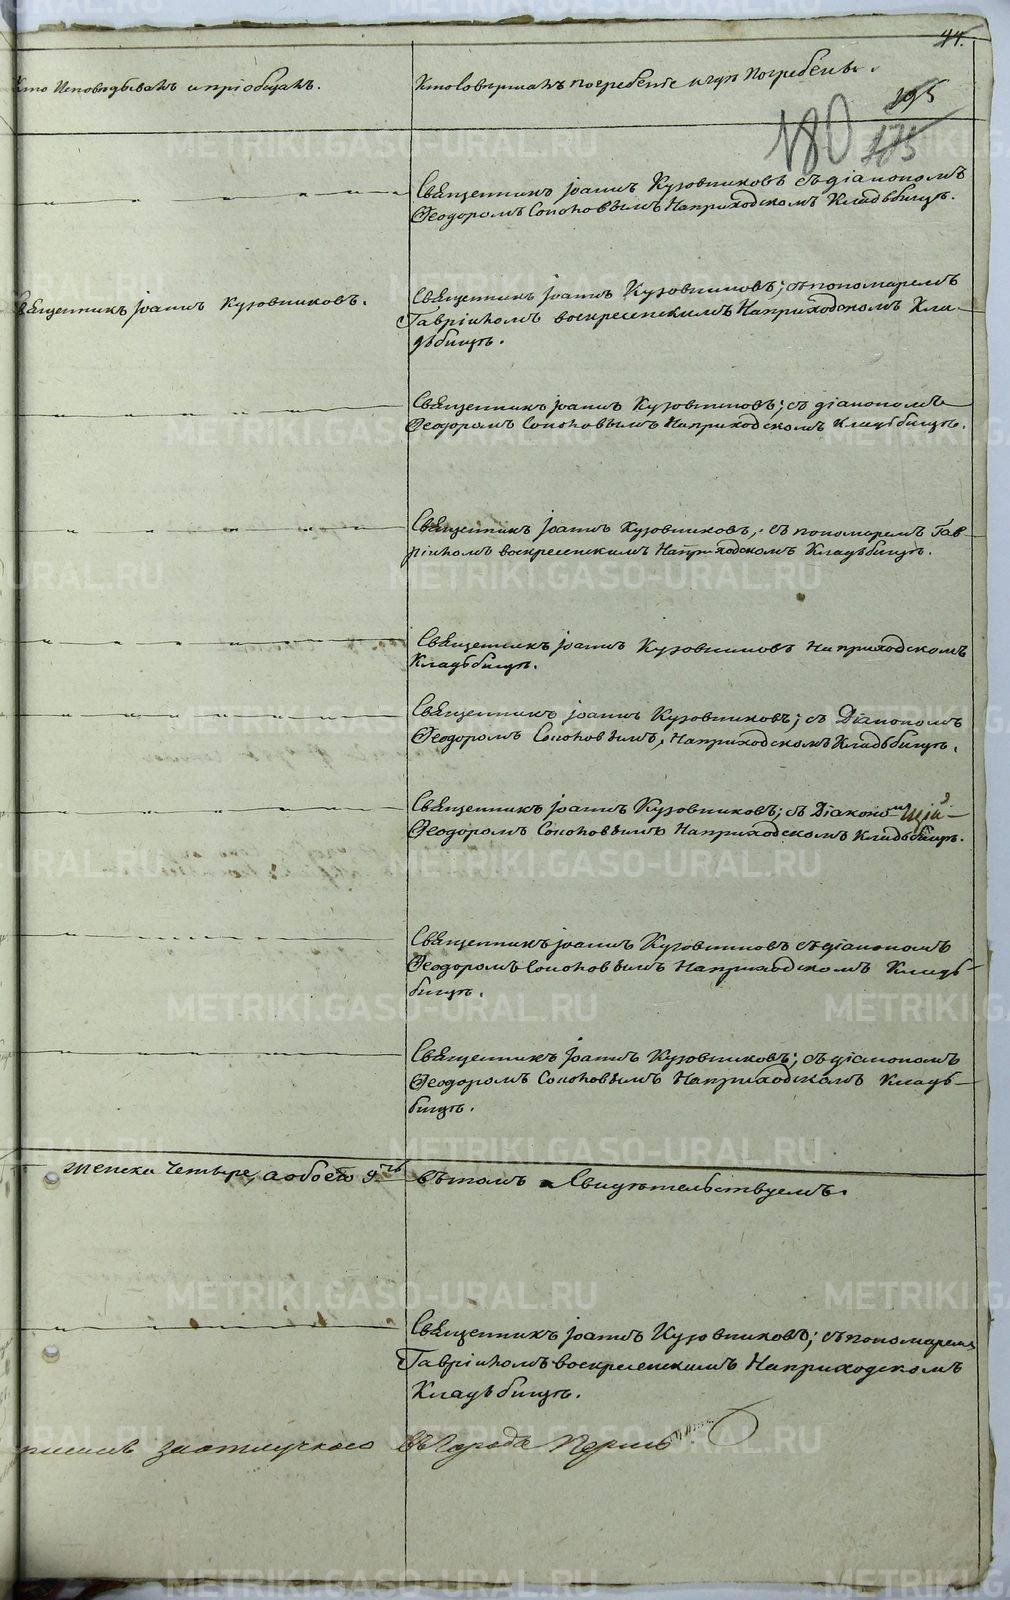 44.
Кто Исповѣдывалъ и пріобщалъ.
Кто Совершалъ погребеніе и гдѣ Погребены.
195
180 175
Священникъ Іоаннъ Кузовниковъ съ діакономъ
Ѳеодоромъ Соколовымъ На приходскомъ Кладьбищѣ.
Священникъ Іоаннъ Кузовниковъ.
Священникъ Іоаннъ Кузовниковъ; съ пономаремъ
Гавріиломъ воскресенскимъ На приходскомъ Кла-
дьбищѣ.
Священникъ Іоаннъ Кузовниковъ; съ діакономъ
Ѳеодоромъ Соколовымъ На приходскомъ Кладьбищѣ.
Священникъ Іоаннъ Кузовниковъ; съ пономаремъ Гав-
ріиломъ воскресенскимъ На приходскомъ Кладьбищѣ.
Священникъ Іоаннъ Кузовниковъ На приходскомъ
Кладьбищѣ.
Священникъ Іоаннъ Кузовниковъ; съ Діакономъ
Ѳеодоромъ Соколовымъ, На приходскомъ Кладьбищѣ.
Священникъ Іоаннъ Кузовниковъ; съ Діакономъ
Ѳеодоромъ Соколовымъ На приходскомъ Кладьбищѣ.
Священникъ Іоаннъ Кузовниковъ съ діакономъ
Ѳеодоромъ Соколовымъ На приходскомъ Кладь-
бищѣ.
Священникъ Іоаннъ Кузовниковъ; съ діакономъ
Ѳеодоромъ Соколовымъ На приходскомъ Кладь-
бищѣ.
женска четыре, а обоего 9ть въ томъ Свидѣтельствуемъ.
Священникъ Іоаннъ Кузовниковъ; съ пономаремъ
Гавріиломъ воскресенскимъ На приходскомъ
Кладьбищѣ.
за отлучкою въ Города Пермь
METRIKI.GASO-URAL.RU